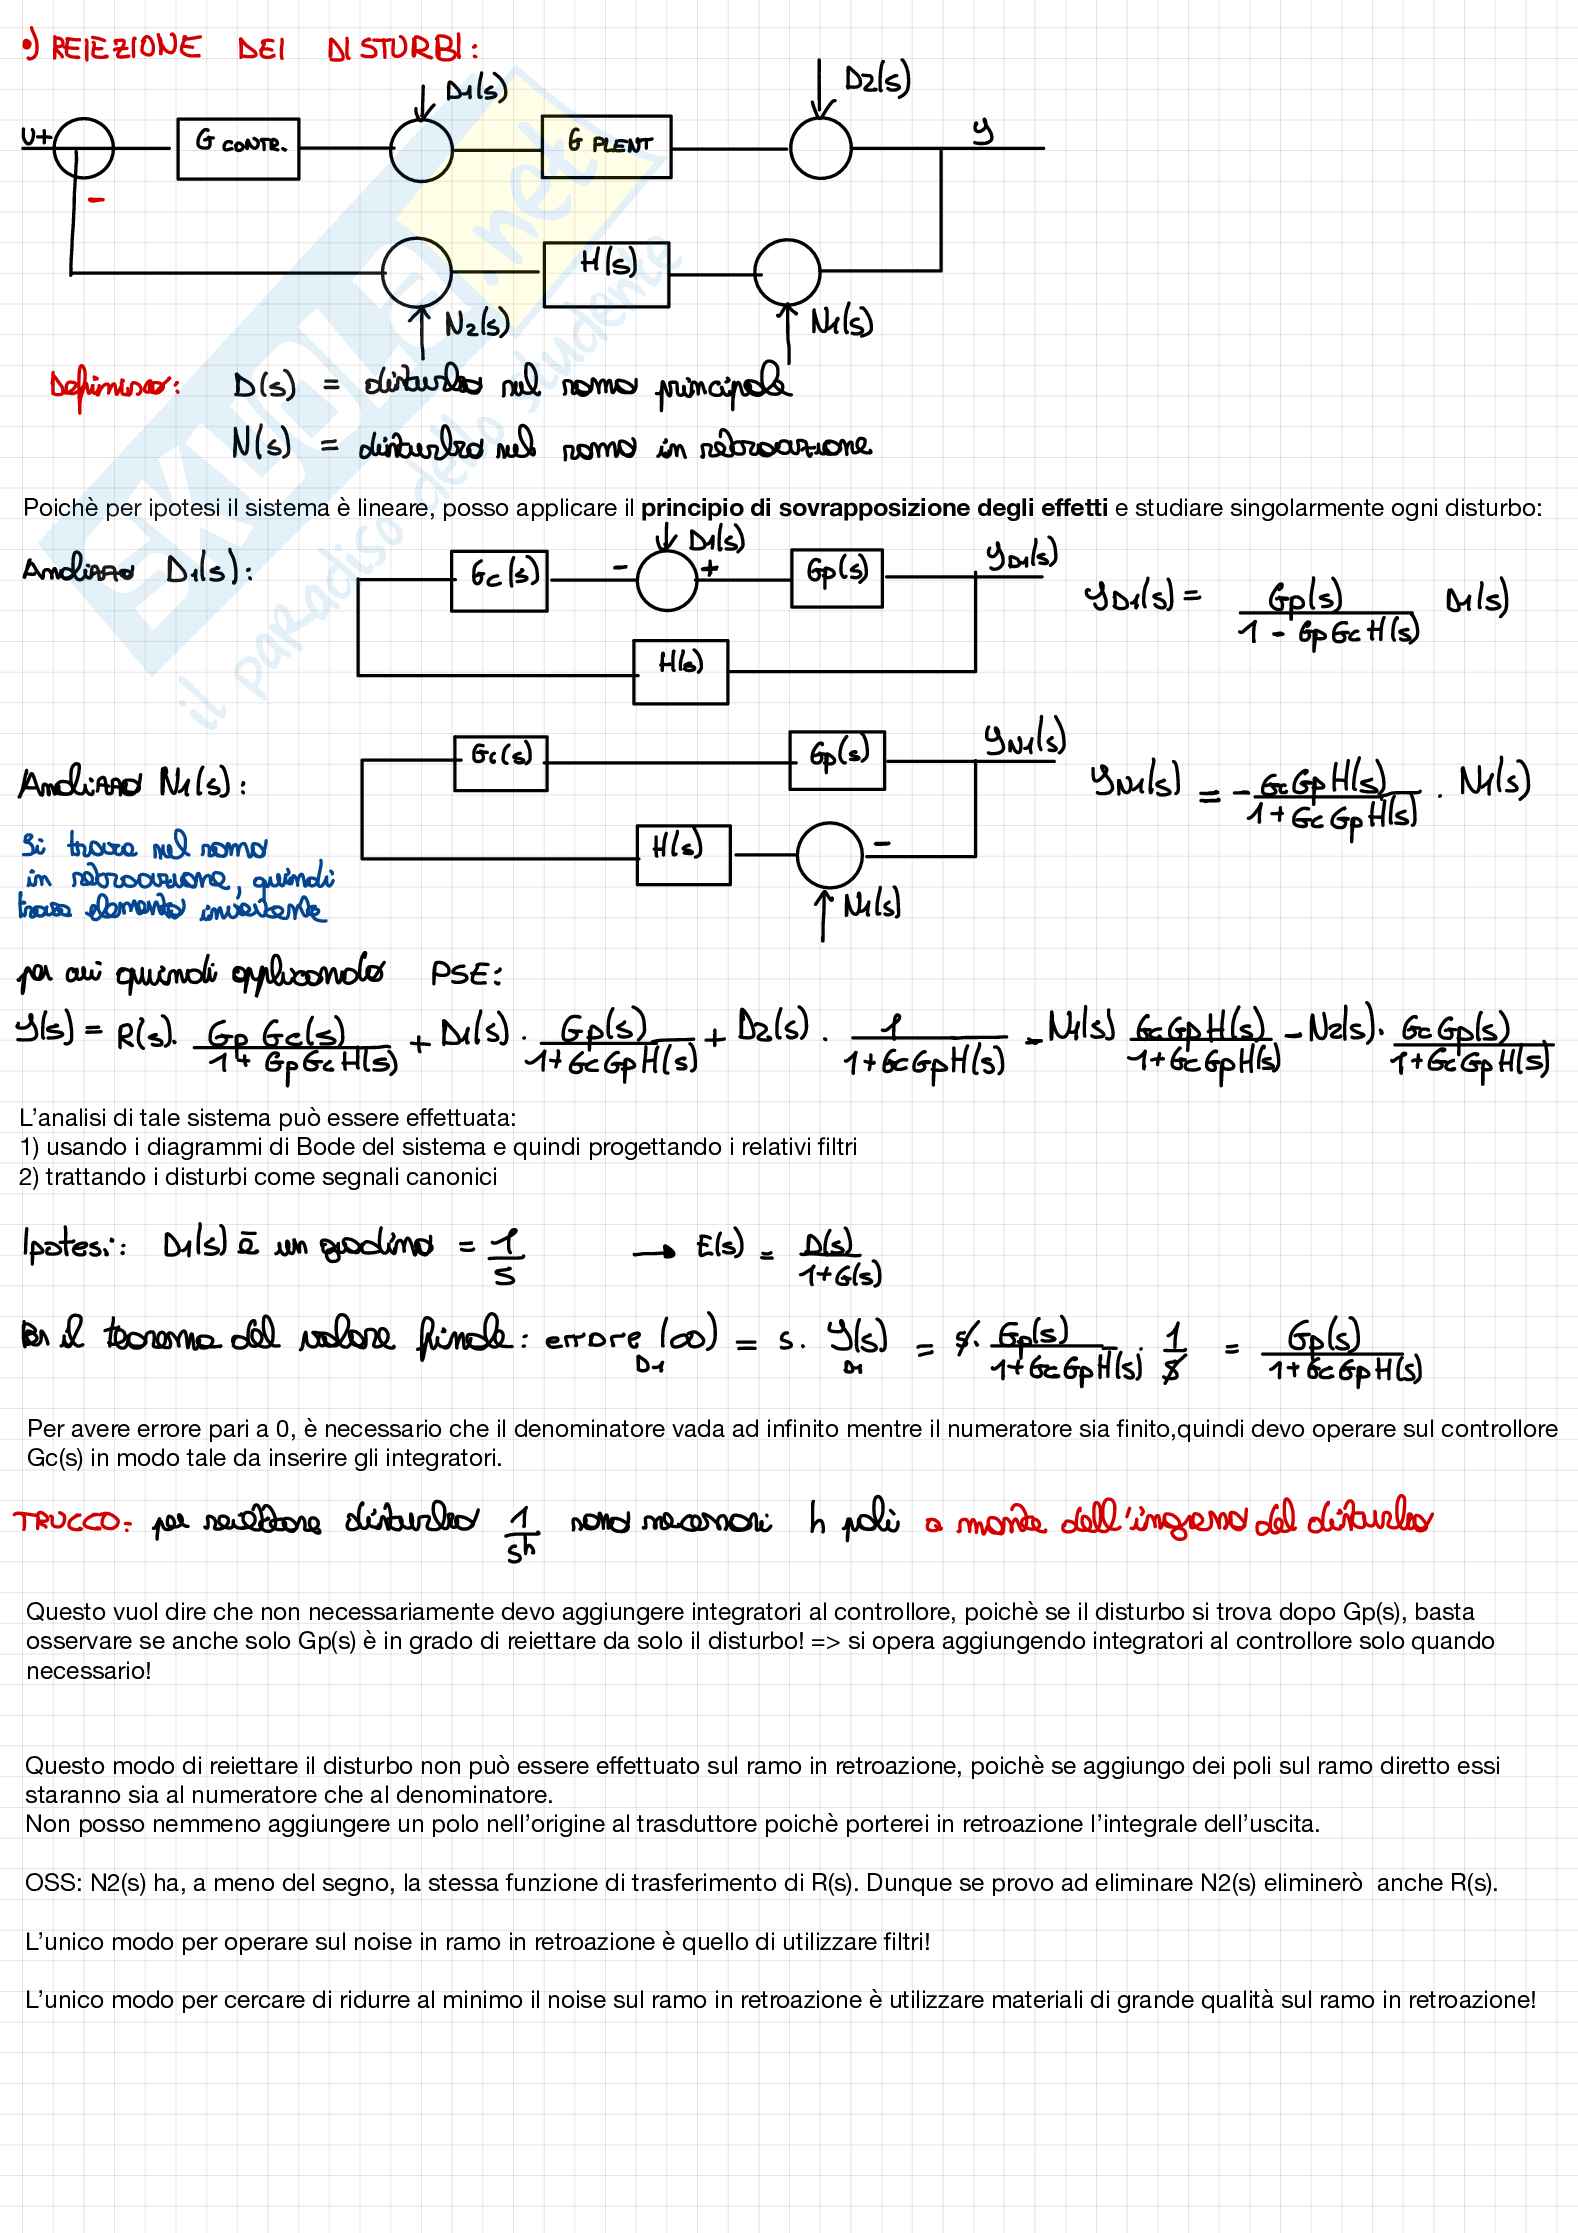 •) REIEZIONE DEI DISTURBI:
D1(s) D2(s)
U+ G CONTR. G PLENT y
-
H(s)
N2(s) N1(s)
Definisco: D(s) = disturbo nel ramo principale
N(s) = disturbo nel ramo in retroazione
Poichè per ipotesi il sistema è lineare, posso applicare il principio di sovrapposizione degli effetti e studiare singolarmente ogni disturbo:
Analizzo D1(s): Gc(s) - D1(s) + Gp(s) yD1(s) yD1(s) = Gp(s) / 1 - GpGcH(s) D1(s)
H(s)
Analizzo N1(s): Gc(s) Gp(s) yN1(s) yN1(s) = - GcGpH(s) / 1+GcGpH(s) · N1(s)
H(s) - N1(s)
Si trova nel ramo
in retroazione, quindi
trova elemento invertente
per cui quindi applicando PSE:
y(s) = R(s)· GpGc(s) / 1+GpGcH(s) + D1(s) · Gp(s) / 1+GcGpH(s) + D2(s) · 1 / 1+GcGpH(s) - N1(s) GcGpH(s) / 1+GcGpH(s) - N2(s)· GcGp(s) / 1+GcGpH(s)
L'analisi di tale sistema può essere effettuata:
1) usando i diagrammi di Bode del sistema e quindi progettando i relativi filtri
2) trattando i disturbi come segnali canonici
Ipotesi: D1(s) è un gradino = 1 / s → E(s) = D(s) / 1+G(s)
Per il teorema del valore finale: errore D1 (∞) = s · y D1 (s) = s · Gp(s) / 1+GcGpH(s) · 1 / s = Gp(s) / 1+GcGpH(s)
Per avere errore pari a 0, è necessario che il denominatore vada ad infinito mentre il numeratore sia finito,quindi devo operare sul controllore
Gc(s) in modo tale da inserire gli integratori.
TRUCCO: per reiettare disturbo 1 / s^h sono necessari h poli a monte dell'ingresso del disturbo
Questo vuol dire che non necessariamente devo aggiungere integratori al controllore, poichè se il disturbo si trova dopo Gp(s), basta
osservare se anche solo Gp(s) è in grado di reiettare da solo il disturbo! => si opera aggiungendo integratori al controllore solo quando
necessario!
Questo modo di reiettare il disturbo non può essere effettuato sul ramo in retroazione, poichè se aggiungo dei poli sul ramo diretto essi
staranno sia al numeratore che al denominatore.
Non posso nemmeno aggiungere un polo nell'origine al trasduttore poichè porterei in retroazione l'integrale dell'uscita.
OSS: N2(s) ha, a meno del segno, la stessa funzione di trasferimento di R(s). Dunque se provo ad eliminare N2(s) eliminerò anche R(s).
L'unico modo per operare sul noise in ramo in retroazione è quello di utilizzare filtri!
L'unico modo per cercare di ridurre al minimo il noise sul ramo in retroazione è utilizzare materiali di grande qualità sul ramo in retroazione!
SKUOLA.net
il paradiso dello studente